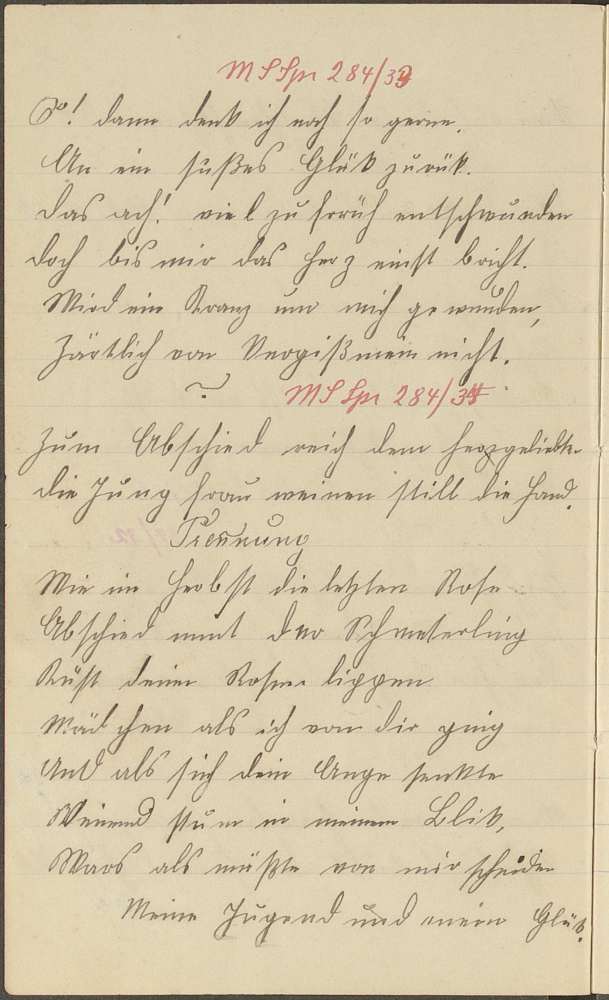 MS Spr 284/33
O! dann denk ich noch so gerne,
An ein süßes Glük zurük.
Das ach! viel zu früh entschwunden
doch bis mir das Herz einst bricht.
Wird ein Kranz um mich gewunden,
Zärtlich von Vergißmein nicht.
MS Spr 284/34
Zum Abschied reich dem herzgeliebten
die Jung frau weinen still die Hand.
Trennung
Wie im Herbst die letzten Rose
Abschied nimt der Schmeterling
Küst deine Rosen lippen
Mädchen als ich von dir ging
Und als sich dein Auge senkte
Weinend stum in meinem Blik,
Wars als müßte von mir scheiden
Meine Jugend und mein Glük.